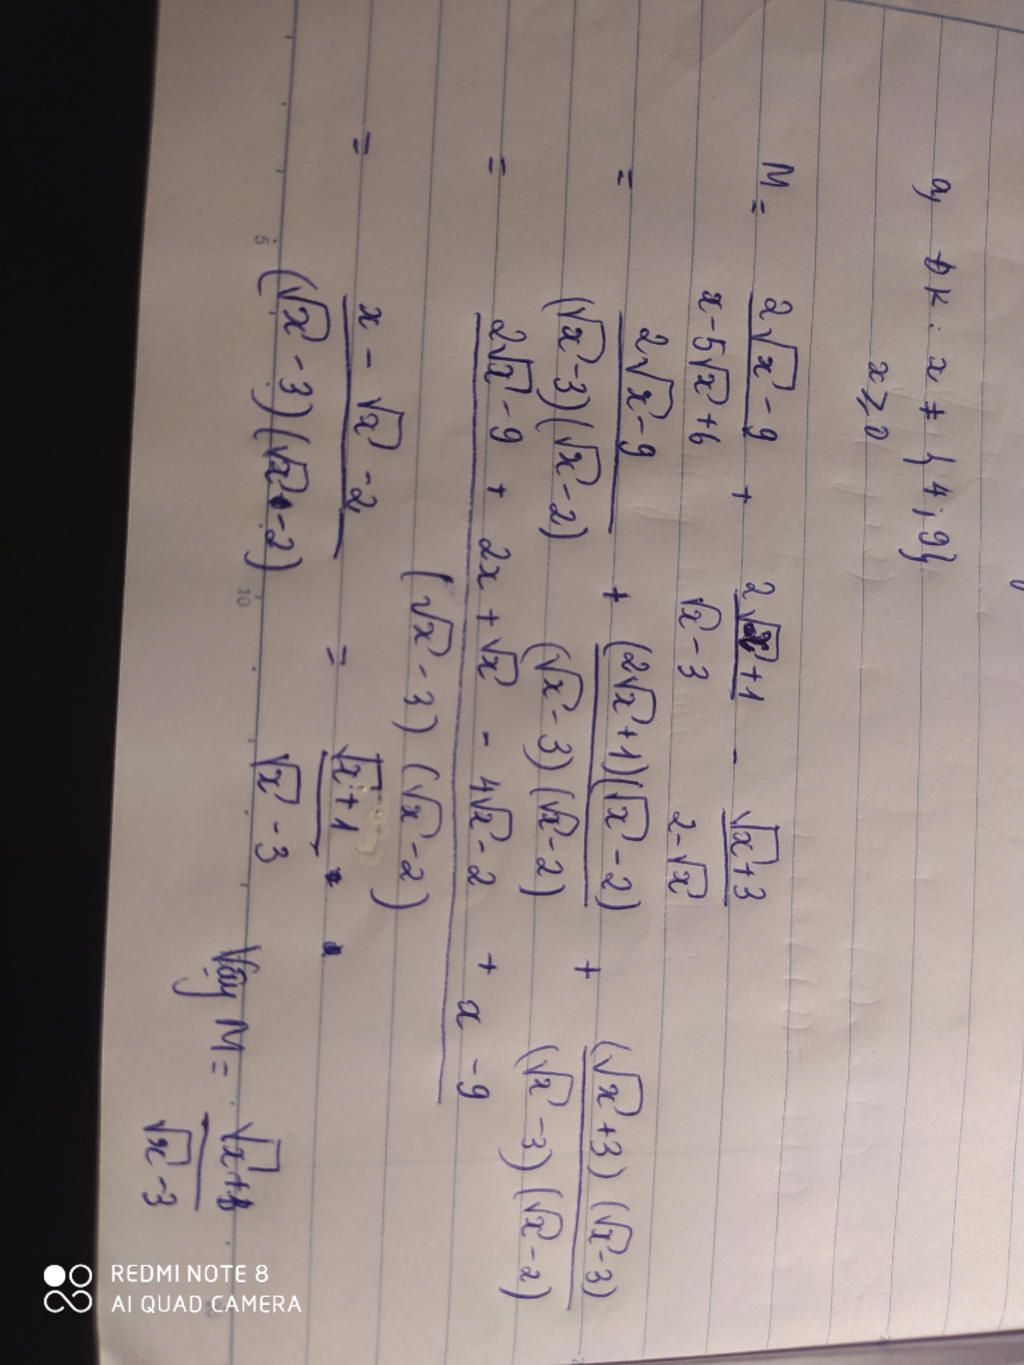 a, ĐK : x ≠ {4; 9}
x ≥ 0
M = (2√x - 9)/(x - 5√x + 6) + (2√x + 1)/(√x - 3) - (√x + 3)/(2 - √x)
= (2√x - 9)/((√x - 3)(√x - 2)) + ((2√x + 1)(√x - 2))/((√x - 3)(√x - 2)) + ((√x + 3)(√x - 3))/((√x - 3)(√x - 2))
= (2√x - 9 + 2x + √x - 4√x - 2 + x - 9)/((√x - 3)(√x - 2))
= (x - √x - 2)/((√x - 3)(√x - 2)) = (√x + 1)/(√x - 3)
Vậy M = (√x +)/(√x - 3)
5
10
REDMI NOTE 8
AI QUAD CAMERA